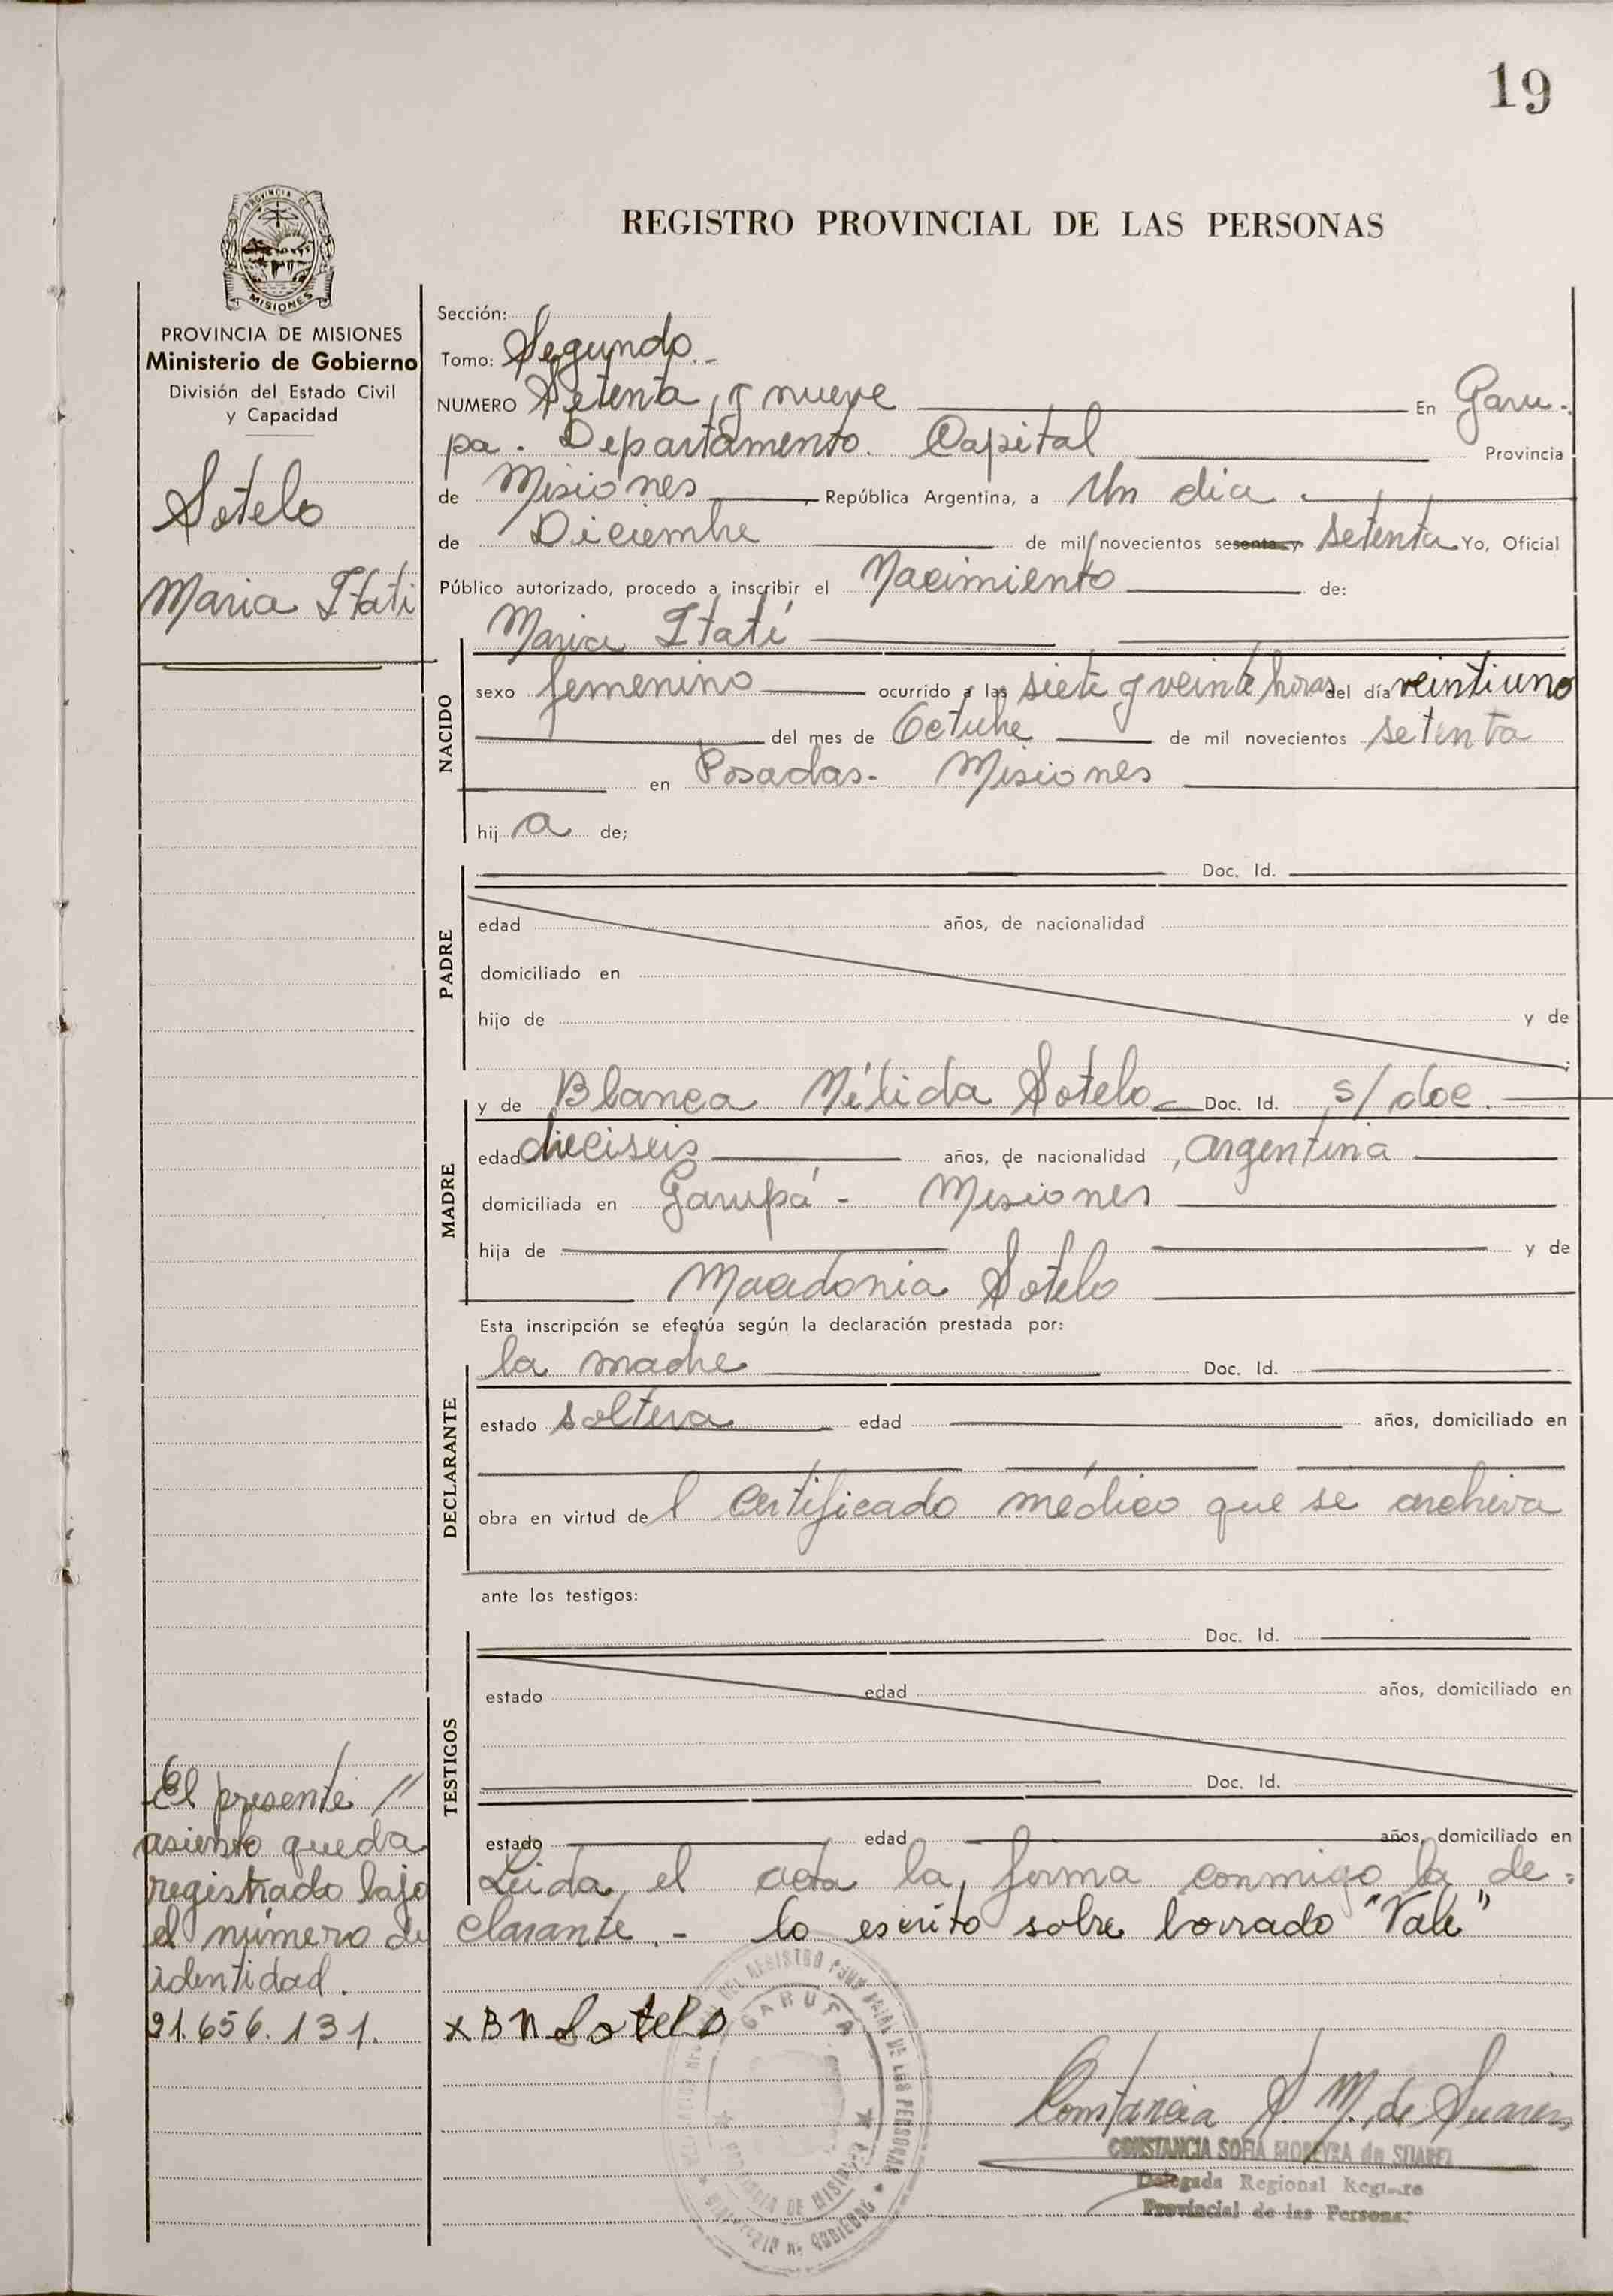 19
REGISTRO PROVINCIAL DE LAS PERSONAS
PROVINCIA DE MISIONES
Ministerio de Gobierno
División del Estado Civil
y Capacidad
Sotelo
Maria Itati
El presente //
asiento queda
registrado bajo
el número de
identidad.
21.656.131.
Sección:
Tomo: Segundo.-
NUMERO Setenta y nueve En Garu-
pa. Departamento. Capital Provincia
de Misiones, República Argentina, a Un dia
de Diciembre de mil novecientos sesenta y setenta Yo, Oficial
Público autorizado, procedo a inscribir el Nacimiento de:
Maria Itatí
NACIDO
sexo femenino ocurrido a las siete y veinte horas del día veintiuno
del mes de Octubre de mil novecientos setenta
en Posadas- Misiones
hij a de;
PADRE
Doc. Id.
edad años, de nacionalidad
domiciliado en
hijo de y de
;
MADRE
y de Blanca Nélida Sotelo Doc. Id. s/doc.
edad dieciseis años, de nacionalidad argentina
domiciliada en Garupá- Misiones
hija de y de
Macedonia Sotelo
Esta inscripción se efectúa según la declaración prestada por:
DECLARANTE
la madre Doc. Id.
estado soltera edad años, domiciliado en
obra en virtud de l certificado médico que se archiva
ante los testigos:
TESTIGOS
Doc. Id.
estado edad años, domiciliado en
Doc. Id.
estado edad años, domiciliado en
Leida el acta la firma conmigo la de-
clarante.- lo escrito sobre borrado "Vale"
x B N Sotelo
Constancia S. M. de Suarez
CONSTANCIA SOFIA MOREYRA de SUAREZ
Delegada Regional Registro
Provincial de las Personas
GARUPA
PROVINCIA DE MISIONES
MINISTERIO DE GOBIERNO